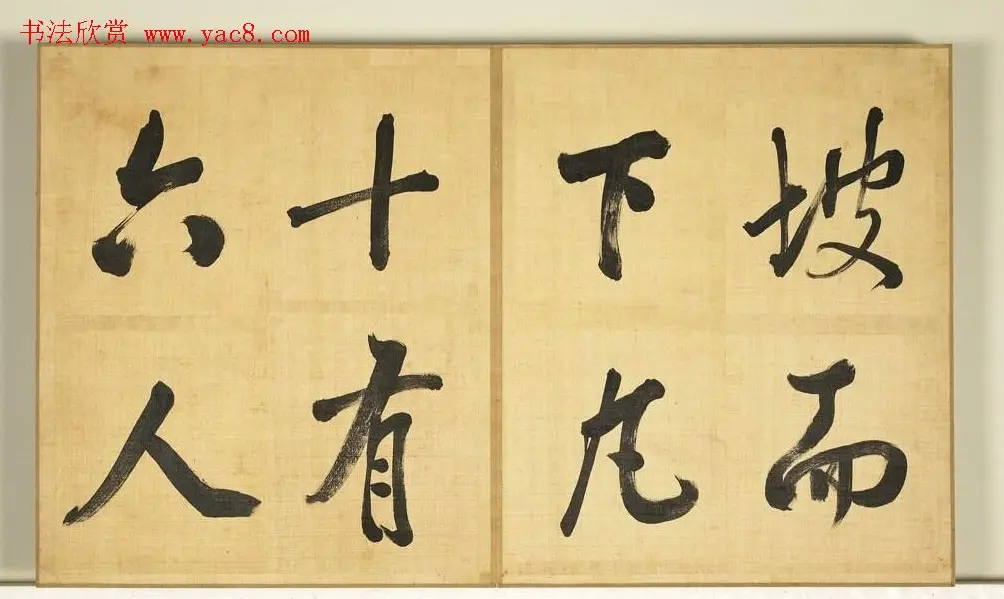 书法欣赏 www.yac8.com
坡而
下凡
十有
六人